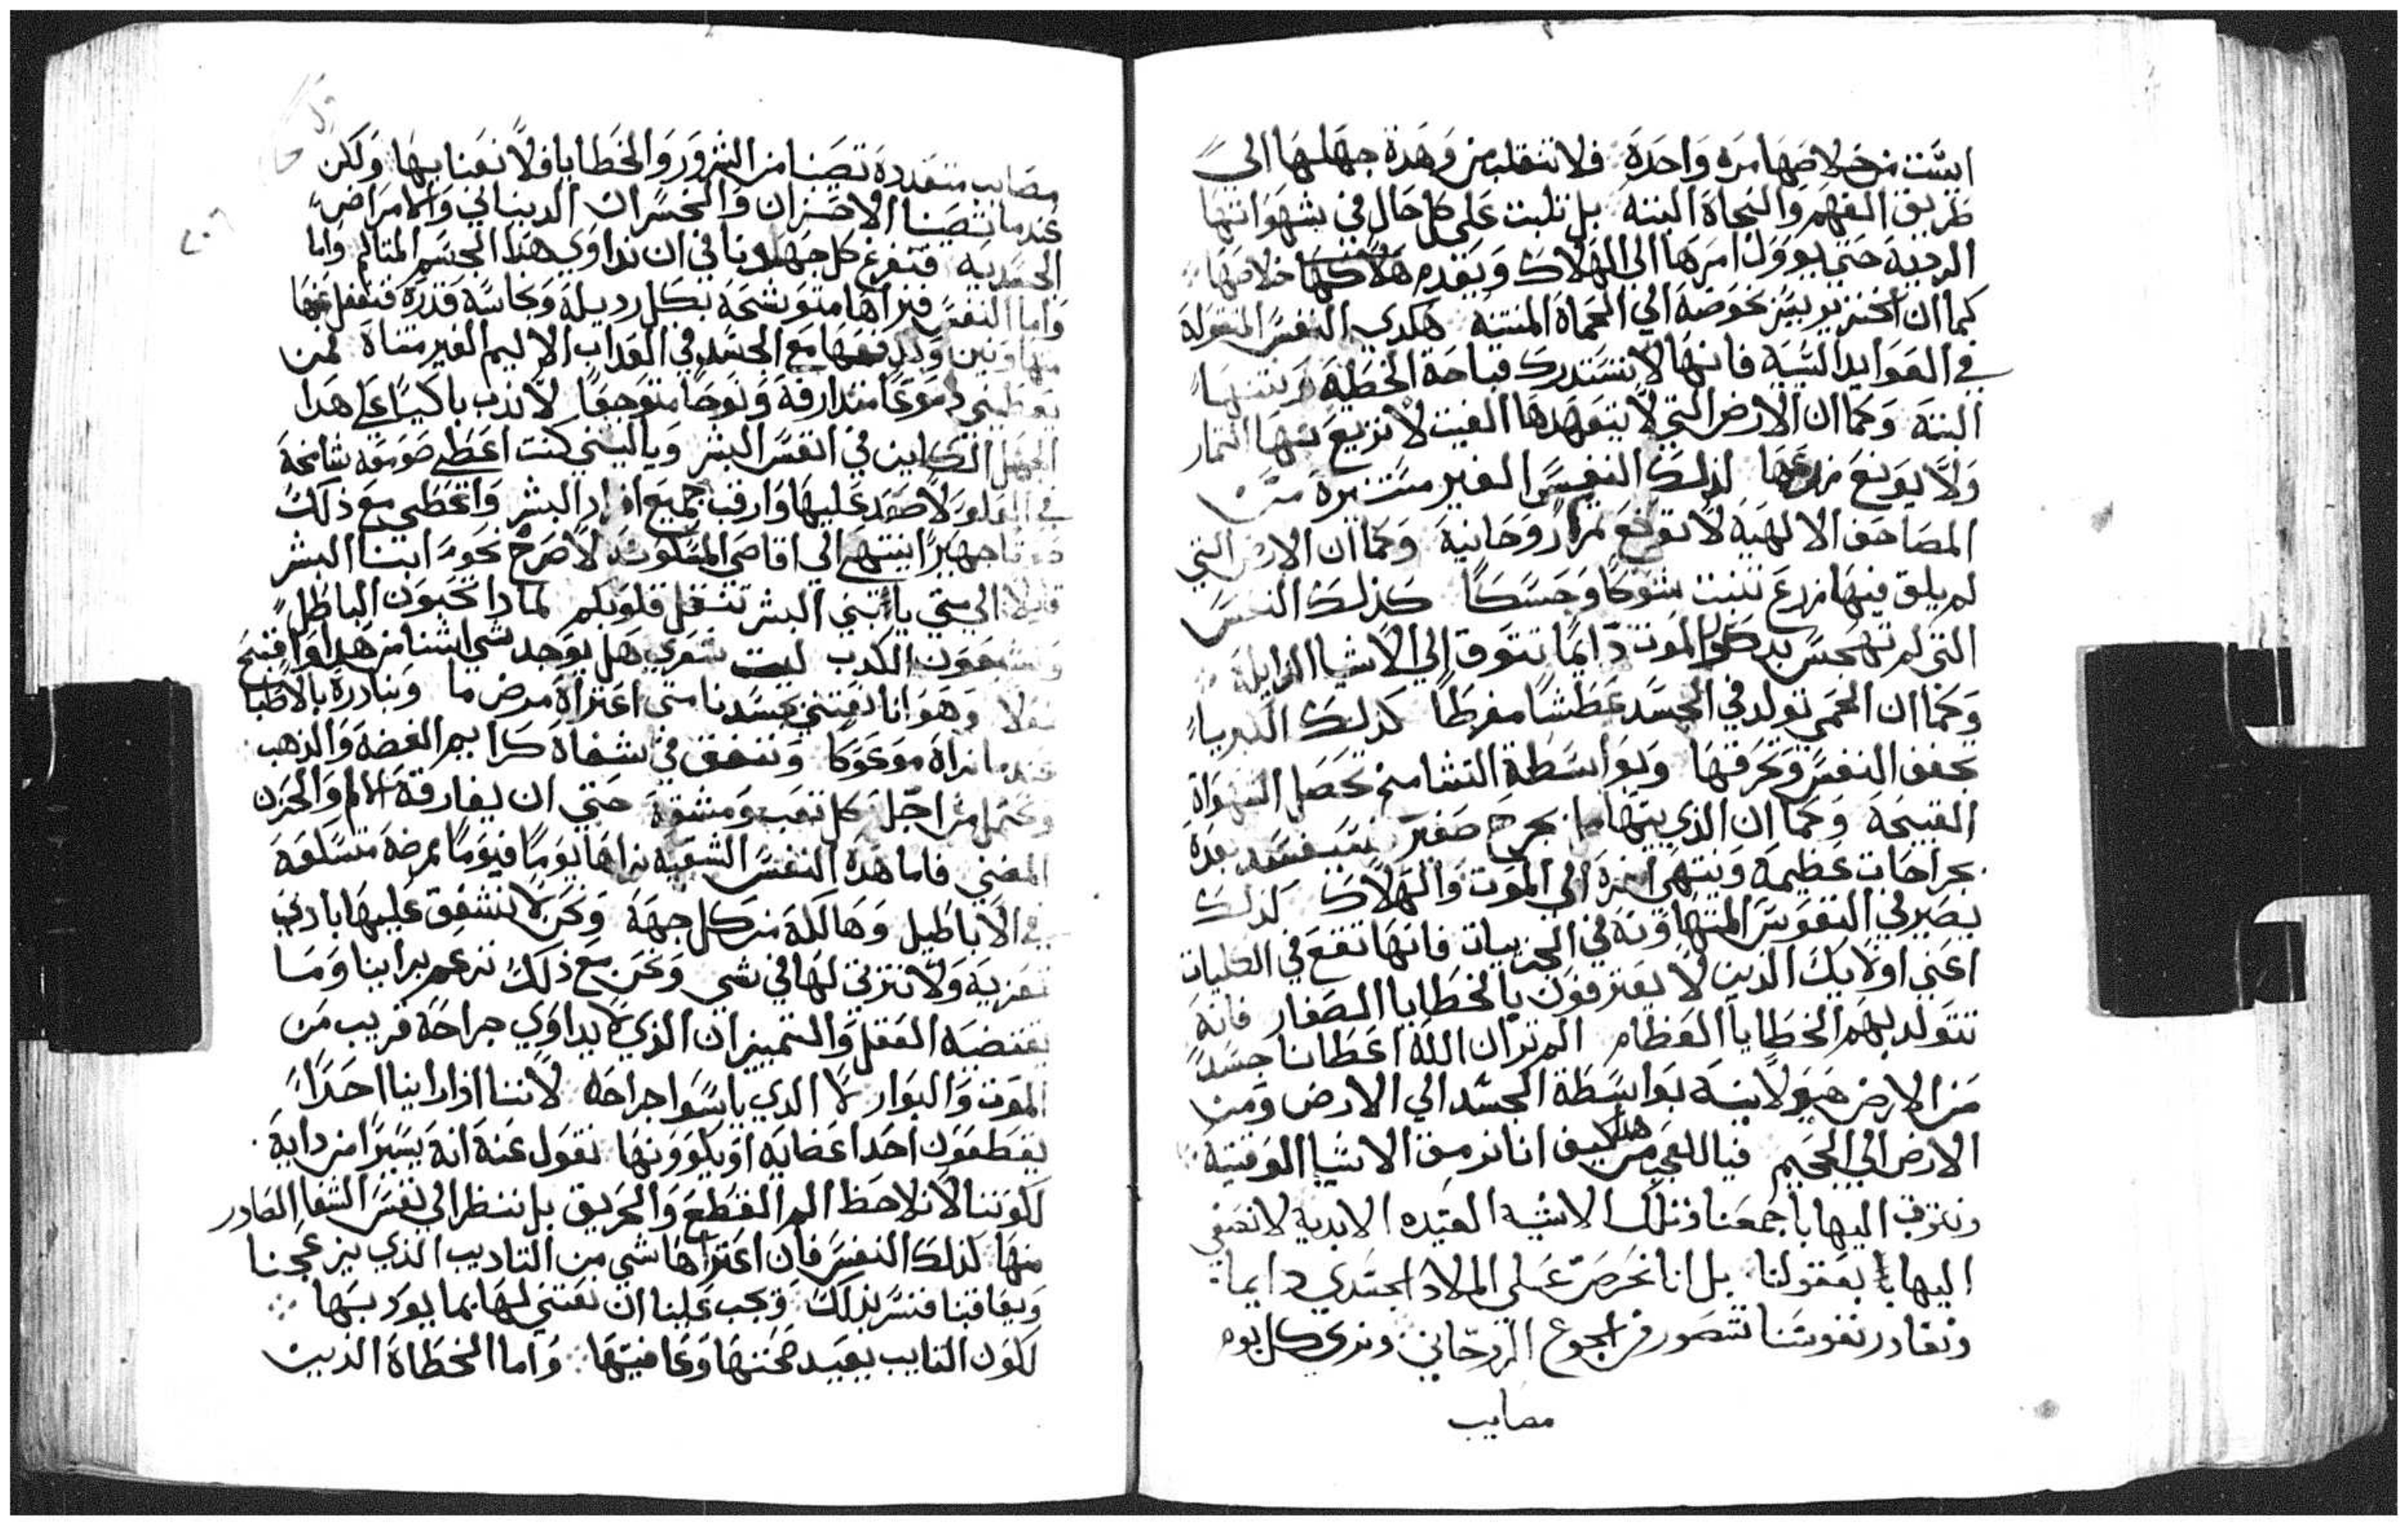 ايست من خلاصها مره واحدة فلا تنقلب من وهدة جهلها الى
طريق الفهم والنجاة البته بل تلبت على كل حال في شهواتها
الرديه حتي يوول امرها الى الهلاك ويعدم خلاصها
كما ان الخنزير يبيز نحوضه الي الحماة المنتنه هكدي النفس المتوله
في العوايد السيه فانها لا تستدرك قباحة الخطية ونتنها
البتة وكما ان الارض التي لا يتعهدها الغيت لا تريع منها التمار
ولا يونع زرعها لذلك النفس الغير مستنيرة من
المصاحف الالهية لا تونع تمرا روحانية وكما ان الارض التي
لم يلق فيها زرع تنبت شوكا وحسكا كذلك النفس
التي لم تهجس بذكر الموت دايما تتوق الي الاشيا الرايلة
وكما ان الحمي تولد في الجسد عطشا مفرطا كذلك الكبرياء
تجفف النفس وتحرقها وبواسطة التشامخ تحصل الشهواة
القبيحة وكما ان الذي يتهامل بجرح صغير بعده
بجراحات عظيمة وينتهي امره الي الموت والهلاك لذلك
يصير في النفوس المتهاونة في الجزييات فانها تقع في الكليات
اعني اولايك الذين لا يعترفون بالخطايا الصغار فانه
تتولد بهم الخطايا العظام الم تر ان الله اعطانا جسدا
من الارض هيولانيه بواسطة الجسد الي الارض ومن
الارض الي الجحيم فيا للعجب من هدا كيف انا نرمق الاشيا الوقتية
ونتزف اليها باجمعنا وتلك الاشيه العتيده الابدية لا نصغي
اليها بعقولنا بل انا نحرص علي الملاد الجسدي دايما
ونغادر نفوسنا تتضور من الجوع الروحاني ونري كل يوم
مصايب
مصايب متعددة تصيبنا من الشرور والخطايا فلا نعنا بها ولكن
عندما تصيبنا الاحزان والخسران الدينالي والامراض
الجسدية فنفرغ كل جهدنا في ان نداوي هذا الجسم المتالم واما
واما النفس فنراها متوشحة بكل رديلة ونجاسة قدرة فنغفل عنها
متهاونين وندفعها مع الجسد في العداب الاليم الغير متناة فمن
يعطيني دموعا متدارفة ونوحا متوجعا لاندب باكيا علي هدا
الجهل الكاين في انفس البشر وياليتني كنت اعطي صومعه شامخة
في العلو لاصعد عليها وارقب جميع افراد البشر واعطي مع ذلك
صوتا جهيرا ينتهي الي اقاصي المسكونة لاصرخ نحو ابنا البشر
قايلا الي متي يا بني البشر تثقل قلوبكم لمادا تحبون الباطل
وتتبعون الكدب ليت شعري هل يوجد شي اشنا من هدا واقبح
فعلا وهو انا نعتني بجسدنا متي اعتراه مرض ما ونبادره بالاطبا
عندما نراه موعوكا وننفق في شفاه كرايم الفضة والذهب
ونحتمل من اجله كل تعب ومشقة حتي ان يفارقه الالم والحزن
المضني فاما هده النفس الشقيه نراها يوما فيوما بمرضة متسلعة
في الاباطيل وهالكة من كل جهة ونحن لا نشفق عليها بادني
تعزية ولا نترتي لها في شي ونحن مع ذلك نزعم براينا وما
يقتضيه العقل والتمييز ان الذي لا يداوي جراحة قريب من
الموت والبوار لا الذي ياسوا جراحه لاننا اذا راينا احدا
يقطعون احد اعضايه او يكوونها نقول عنه انه يسيرا من داية
لكوننا لا نلاحظ الم القطع والحريق بل ننظر الي نفس الشفا الصادر
منها لذلك النفس فان اعتراها شي من التاديب الذي يزعجنا
ويعاقبنا فنسر بذلك ويجب علينا ان نعتني لها بما يودبها
لكون التايب يعيد صحتها وعافيتها واما الخطاة الذين